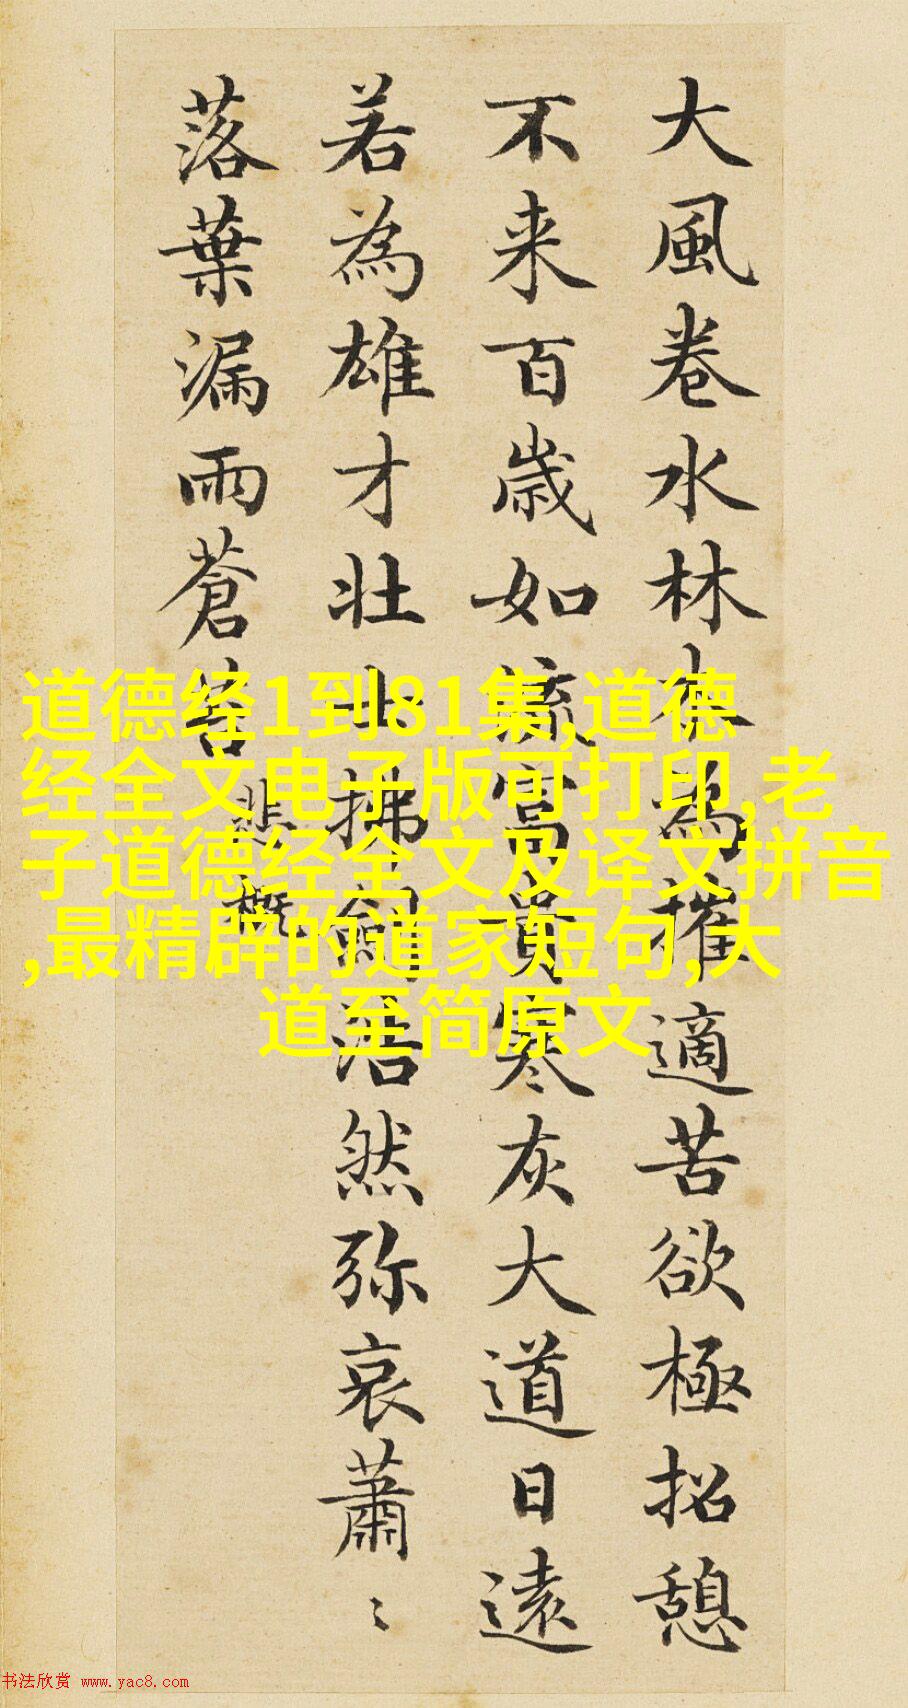 大風卷水林木為摧適苦欲極招憩
不来百歳如流富貴寒灰大道日遠
若為雄才壮士拂劔浩然弥哀蕭〻
落葉漏雨蒼苔
悲慨
道德经1到81集,道德
经全文电子版可打印,老
子道德经全文及译文拼音
,最精辟的道家短句,大
道至简原文
书法欣赏 www.yac8.com